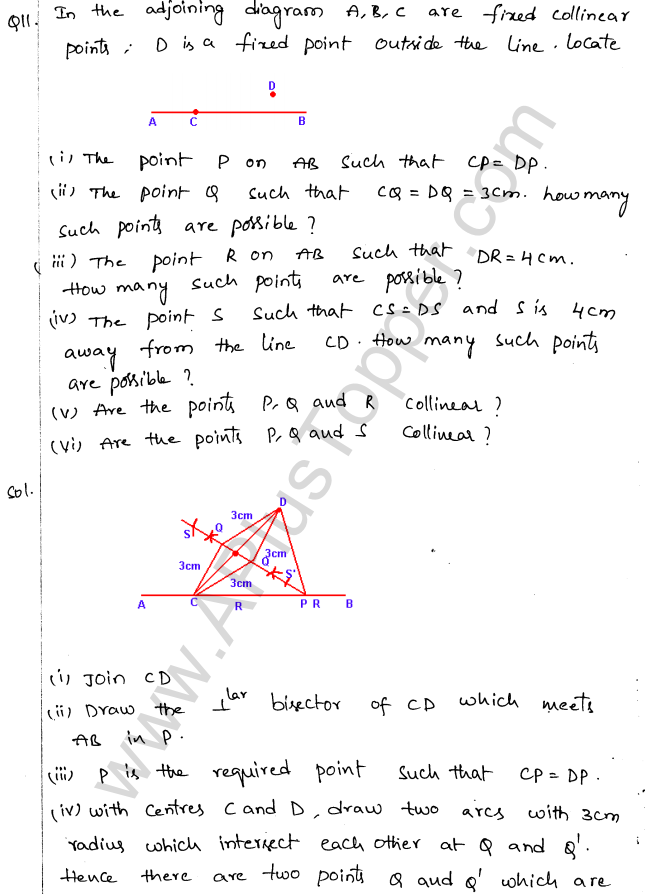 Q11. In the adjoining diagram A, B, C are fixed collinear
points; D is a fixed point outside the line. locate
D
A C B
(i) The point P on AB such that CP = DP.
(ii) The point Q such that CQ = DQ = 3cm. how many
such points are possible?
(iii) The point R on AB such that DR = 4cm.
How many such points are possible?
(iv) The point S such that CS = DS and S is 4cm
away from the line CD. How many such points
are possible?
(v) Are the points P, Q and R collinear?
(vi) Are the points P, Q and S collinear?
Sol.
D
3cm
S Q
3cm
3cm Q S'
3cm
A C R P R B
(i) Join CD
(ii) Draw the ⊥lar bisector of CD which meets
AB in P.
(iii) P is the required point such that CP = DP.
(iv) with centres C and D, draw two arcs with 3cm
radius which intersect each other at Q and Q'.
Hence there are two points Q and Q' which are
www.APlusTopper.com